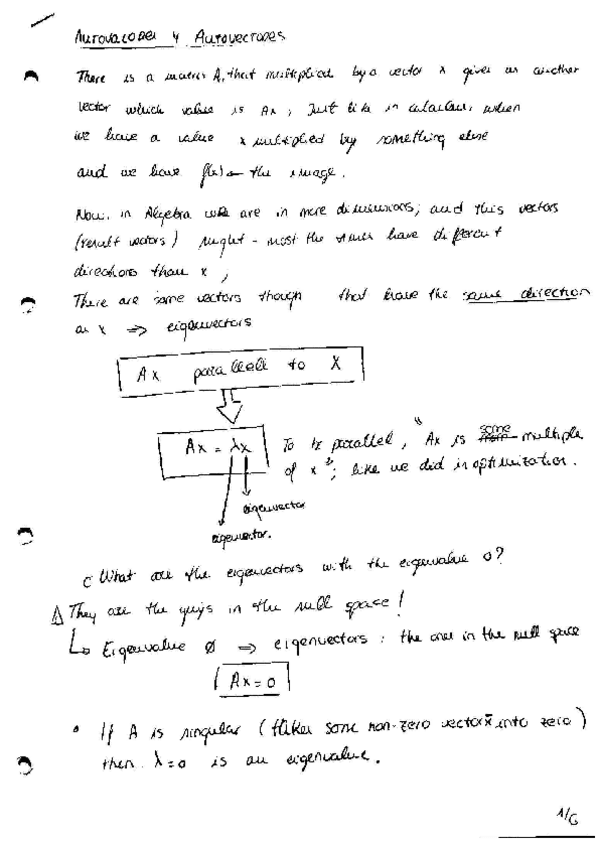 Autovalores y Autovectores
There is a matrix A, that multiplied by a vector x gives us another
vector which value is Ax; Just like in calculus, when
we have a value x multiplied by something else
and we have f(x) ← the image.
Now, in Algebra we are in more dimensions; and this vectors
(result vectors) might - most the times have different
directions than x,
There are some vectors though that have the same direction
as x ⇒ eigenvectors
Ax parallell to X
Ax = λx
To be parallel, "Ax is some multiple
of x"; like we did in optimization.
eigenvector
eigenvector.
What are the eigenvectors with the eigenvalue 0?
They are the guys in the null space!
Eigenvalue ∅ ⇒ eigenvectors: the ones in the null space
Ax = 0
• If A is singular (takes some non-zero vector x̄ into zero)
then λ = 0 is an eigenvalue.
1/6